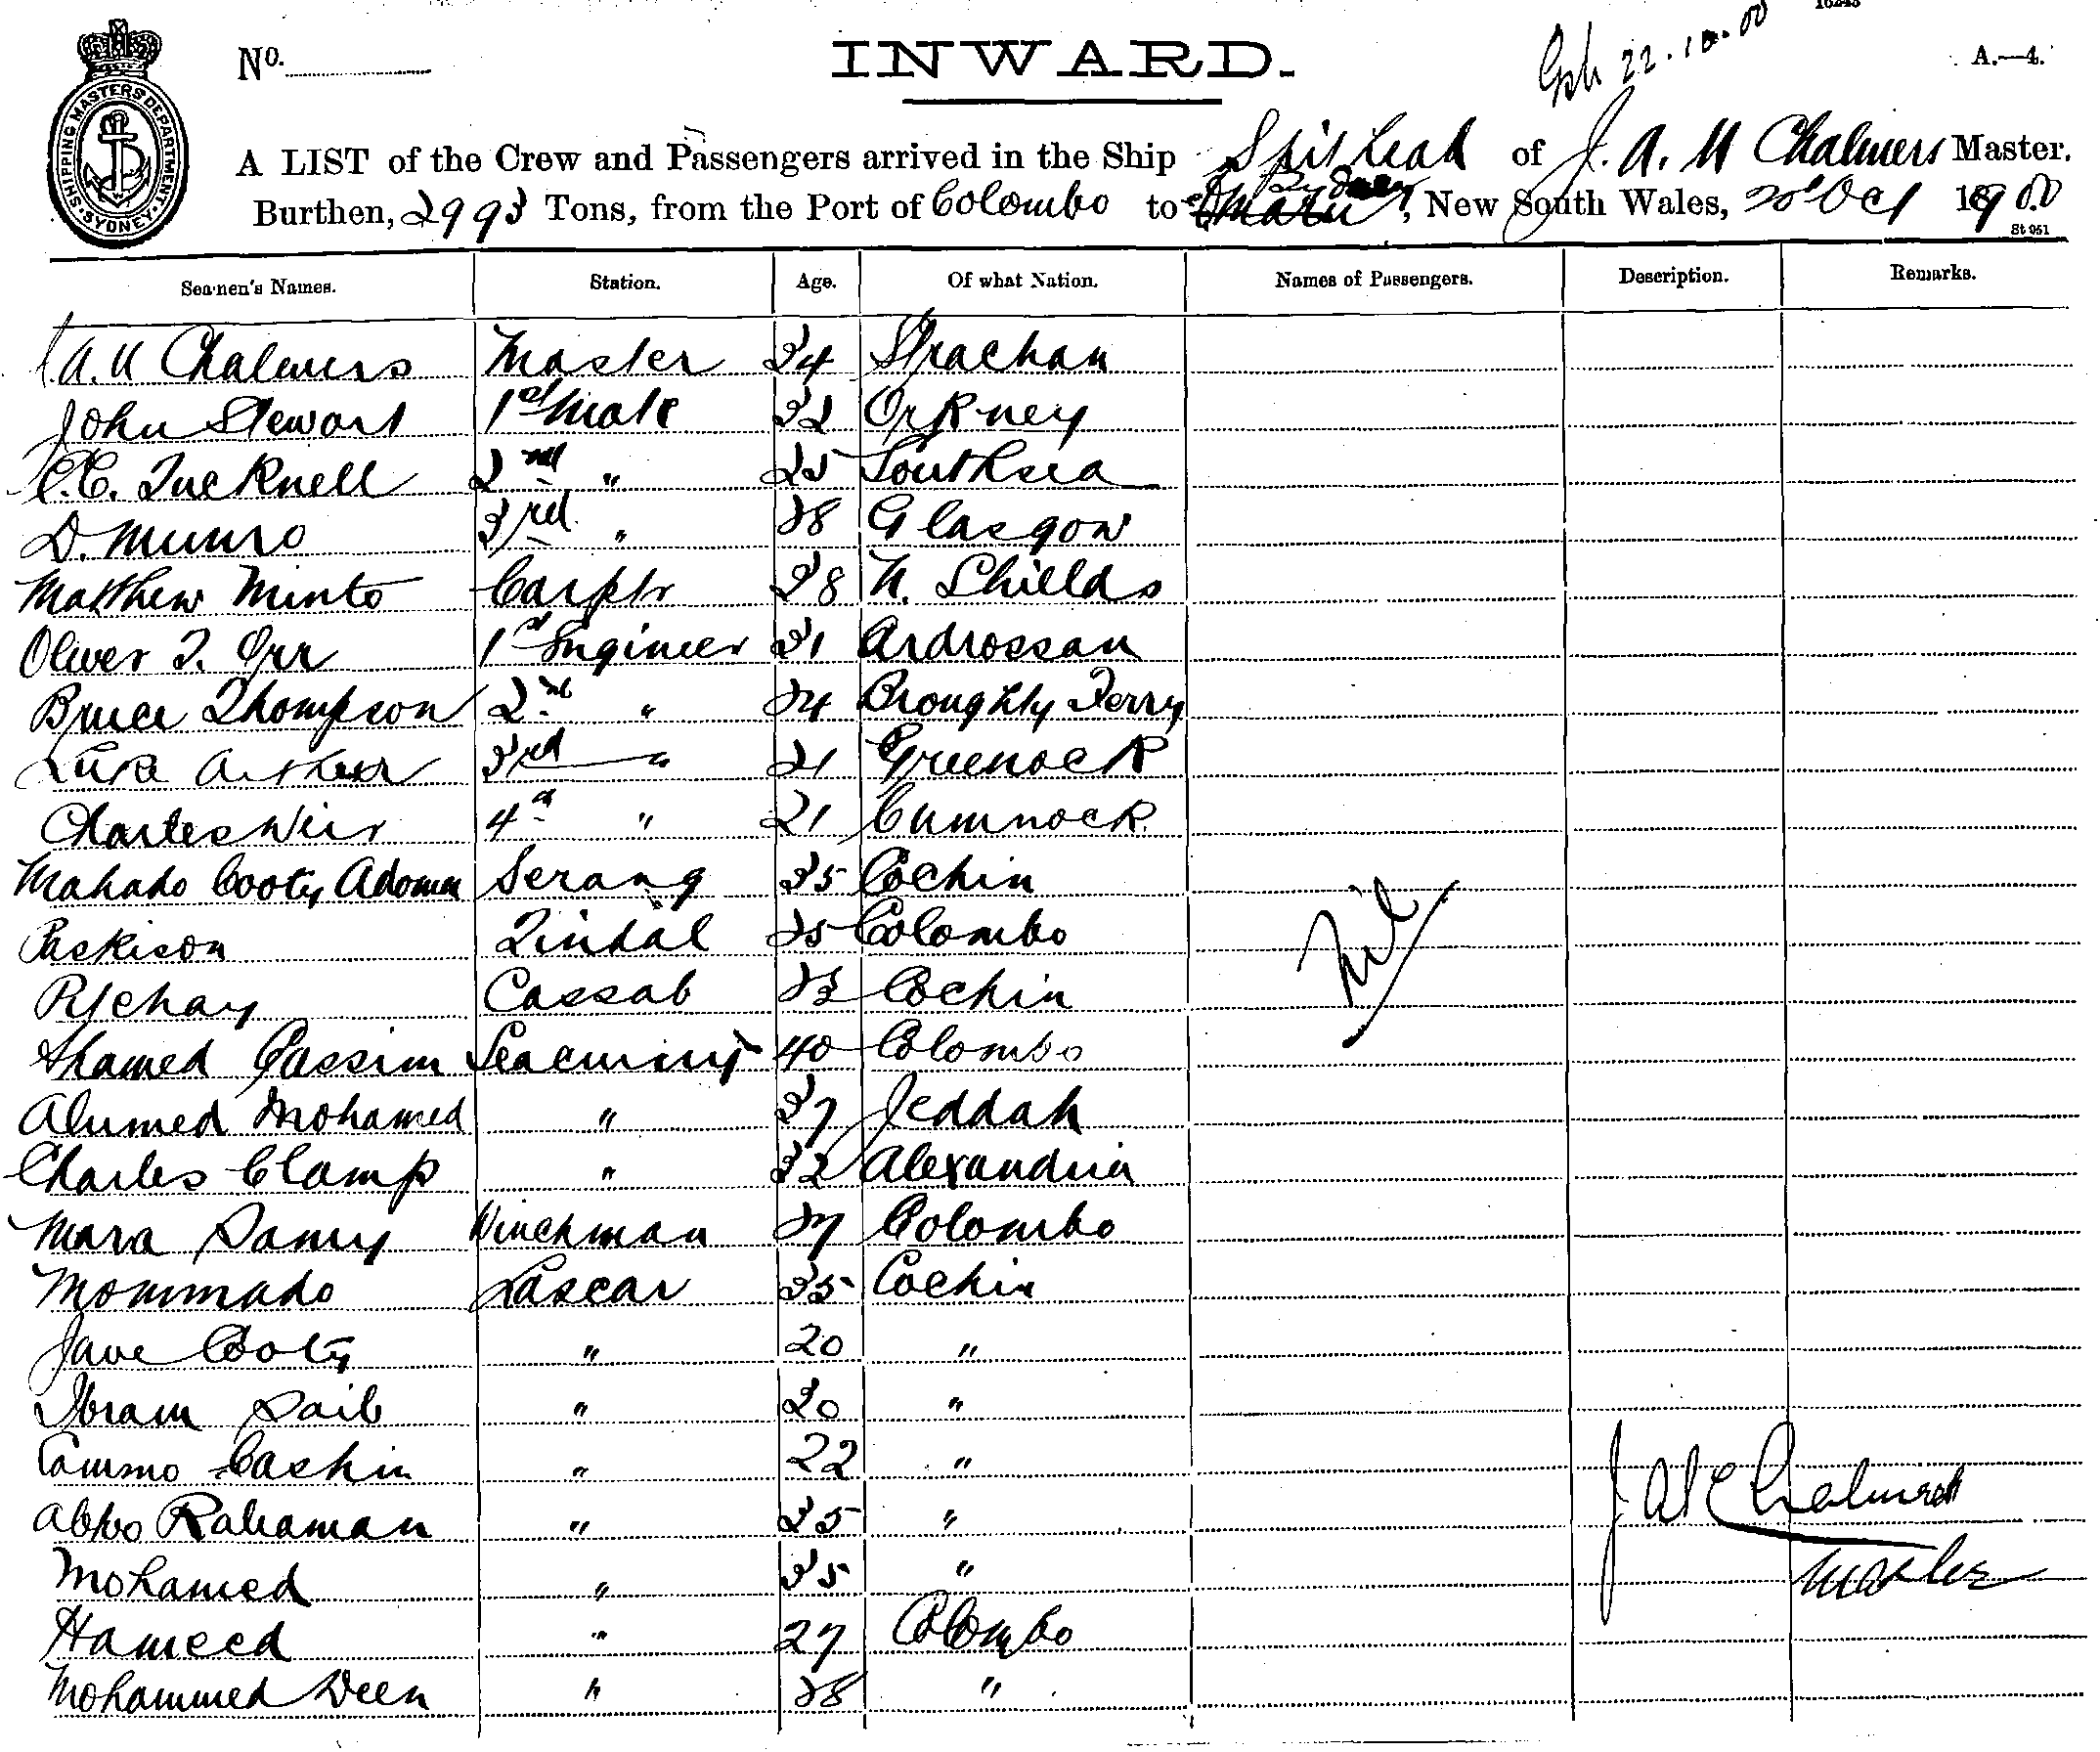 16243
Gph 22.10.00
No.
INWARD.
A.—4.
SHIPPING MASTERS DEPARTMENT
SYDNEY
A LIST of the Crew and Passengers arrived in the Ship Spithead of J. A. M Chalmers Master.
Burthen, 2993 Tons, from the Port of Colombo to Sydney, New South Wales, 20th Oct 1900
St 051
Seamen's Names. Station. Age. Of what Nation. Names of Passengers. Description. Remarks.
J. A. M Chalmers Master 34 Strachan
John Stewart 1st Mate 32 Orkney
C.C. Tucknell 2nd " 25 Southsea
D. Munro 3rd " 28 Glasgow
Matthew Minto Carptr 28 N. Shields
Oliver T. Orr 1st Engineer 31 Ardrossan
Bruce Thompson 2nd " 24 Broughty Ferry
Luke Arthur 3rd " 21 Greenock
Charles Weir 4th " 21 Cumnock
Mahado Cooty Adoma Serang 35 Cochin
Packison Tindal 25 Colombo
Cassab Cochin
Ahamed Cassim Seacunny 40 Colombo
Ahamed Mohamed " 37 Jeddah
Charles Clamp " 32 Alexandria
Mara Samy Winchman 27 Colombo
Mommado Lascar 35 Cochin
Jave Cooty " 20 "
Ibram Saib " 20 "
Commo Cashin " 22 "
Abbo Rahaman " 35 "
Mohamed " 35 "
Hameed " 27 Colombo
Mohammed Deen " 28 "
Nil
J A M Chalmers
Master